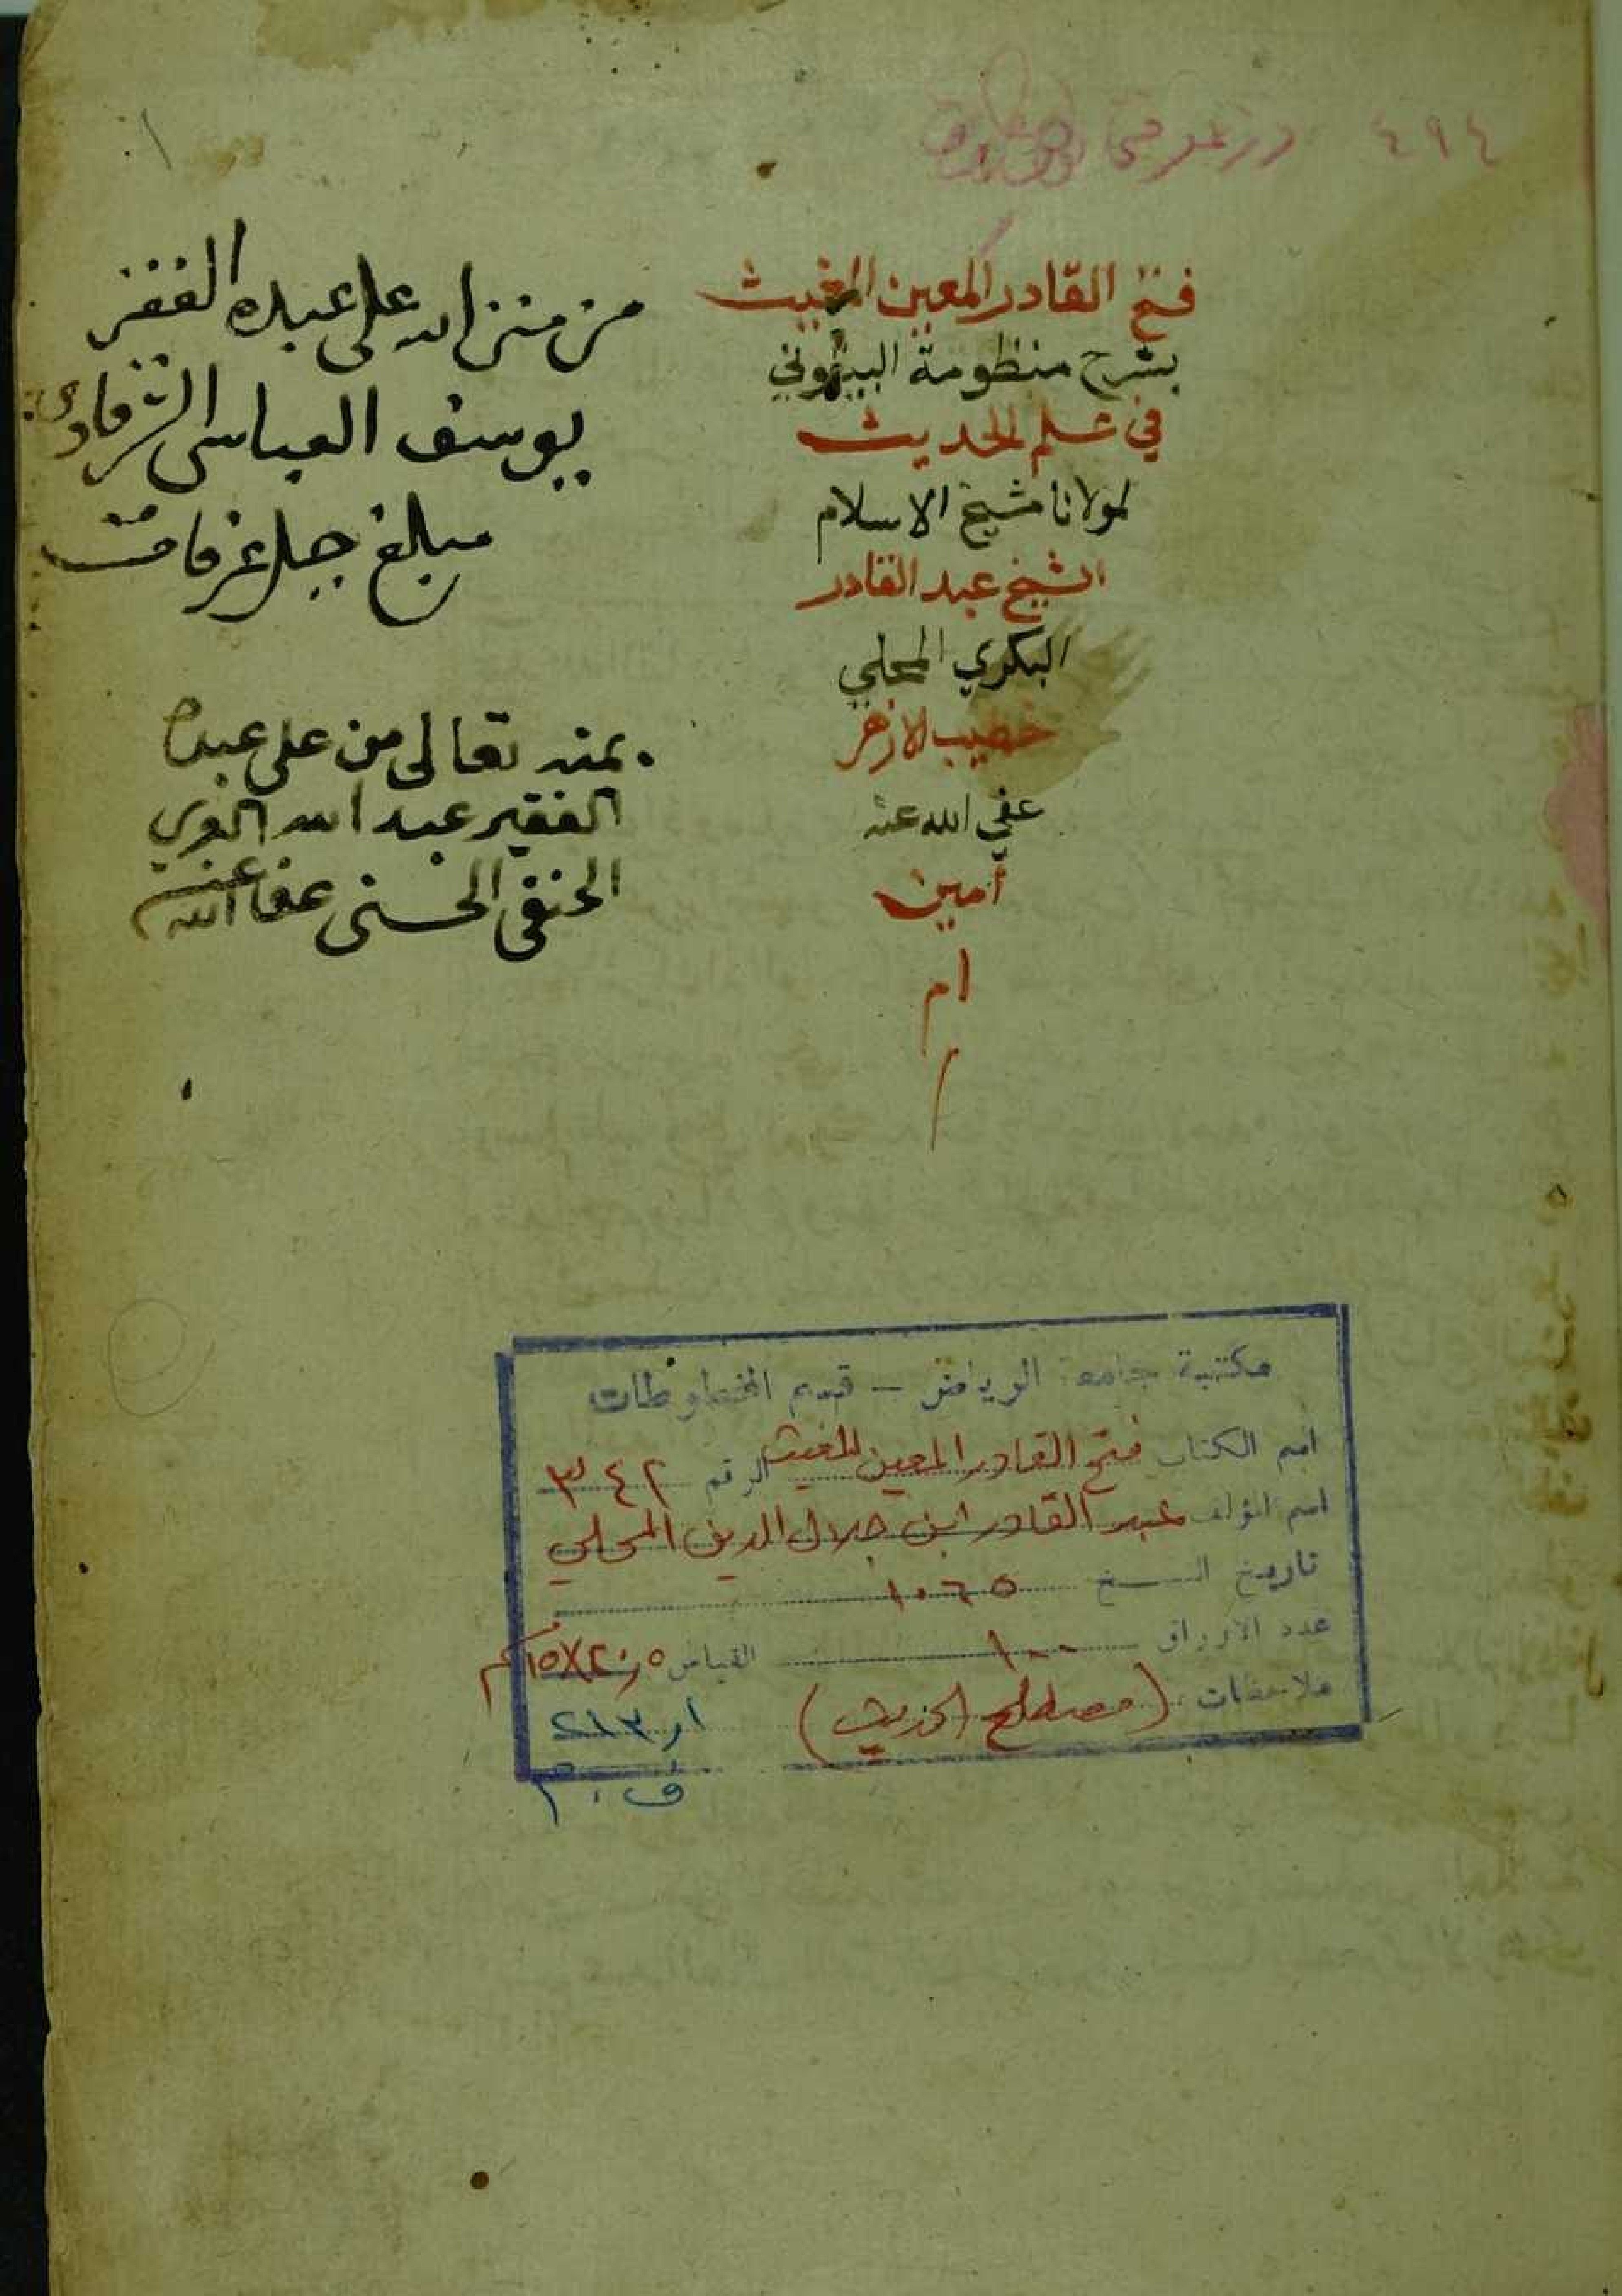 ٤٩٤
١
فتح القادر المعين المغيث
بشرح منظومة البيقوني
في علم الحديث
لمولانا شيخ الاسلام
الشيخ عبد القادر
البكري المحلي
خطيب الازهر
عفي الله عنه
أمين
ام
م
من منن الله على عبده الفقير
يوسف العباسي
مبلغ جبل عرفات
بمنه تعالى من على عبده
الفقير عبد الله
الحنفي الحسني عفا الله عنه
مكتبة جامعة الرياض - قسم المخطوطات
اسم الكتاب فتح القادر المعين المغيث الرقم ٣٤٢
اسم المؤلف عبد القادر ابن جلال الدين المحلي
تاريخ النسخ ١٠٦٥
عدد الاوراق ١٠٠ القياس ٢٠,٥×١٥ سم
ملاحظات (مصطلح الحديث) ٢١٣,١
ف . م